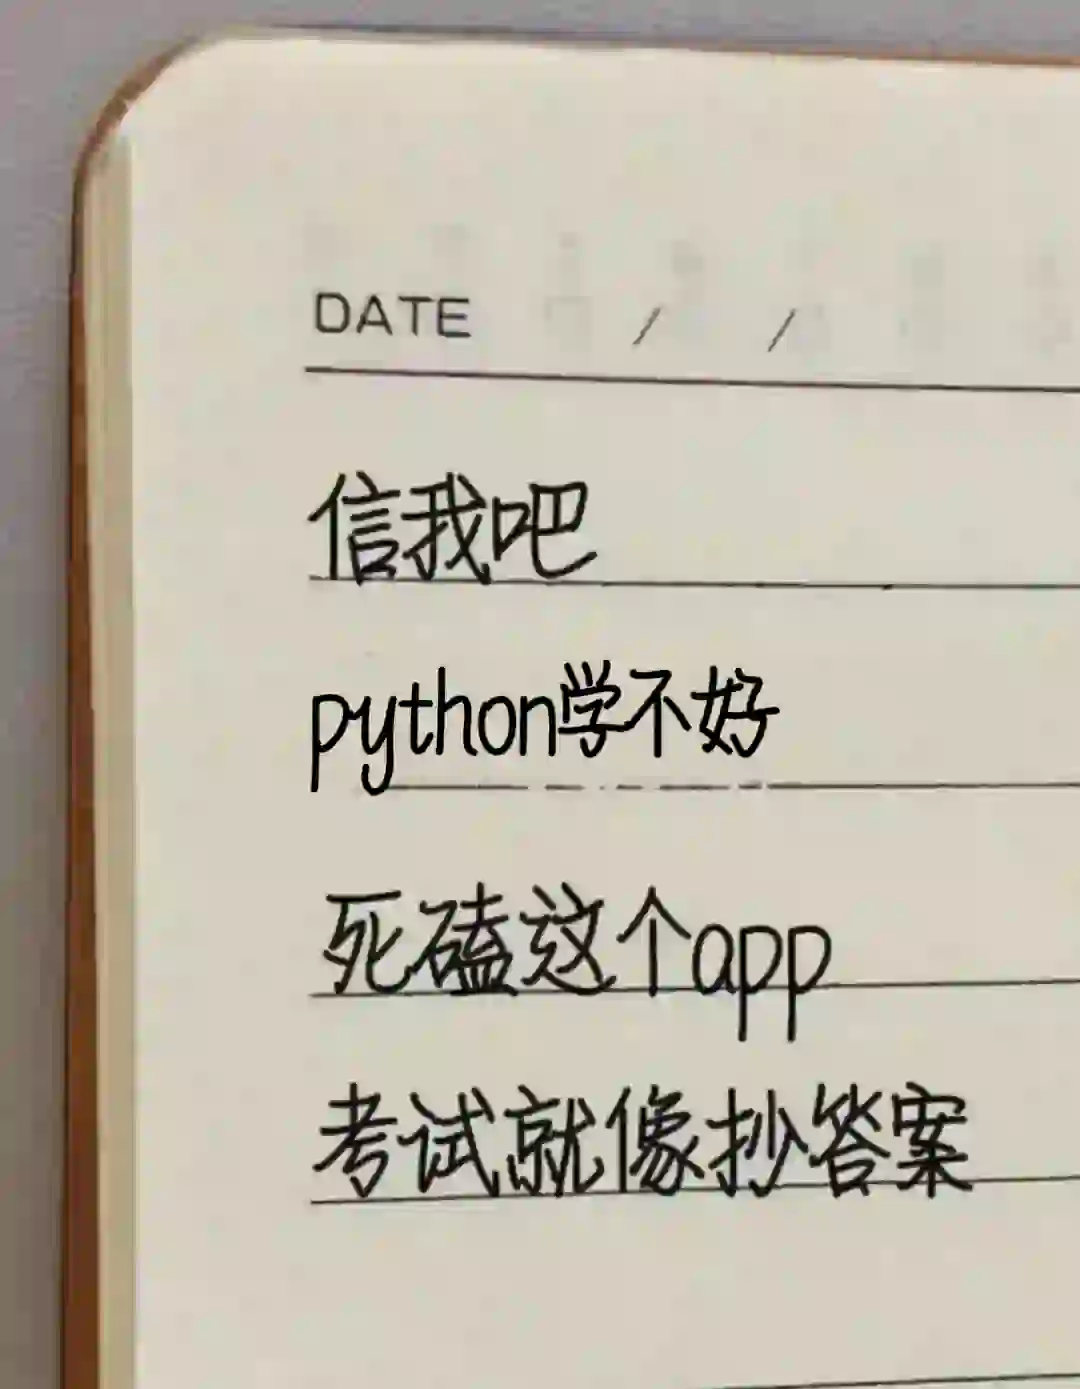 DATE / /
信我吧
python学不好
死磕这个app
考试就像抄答案